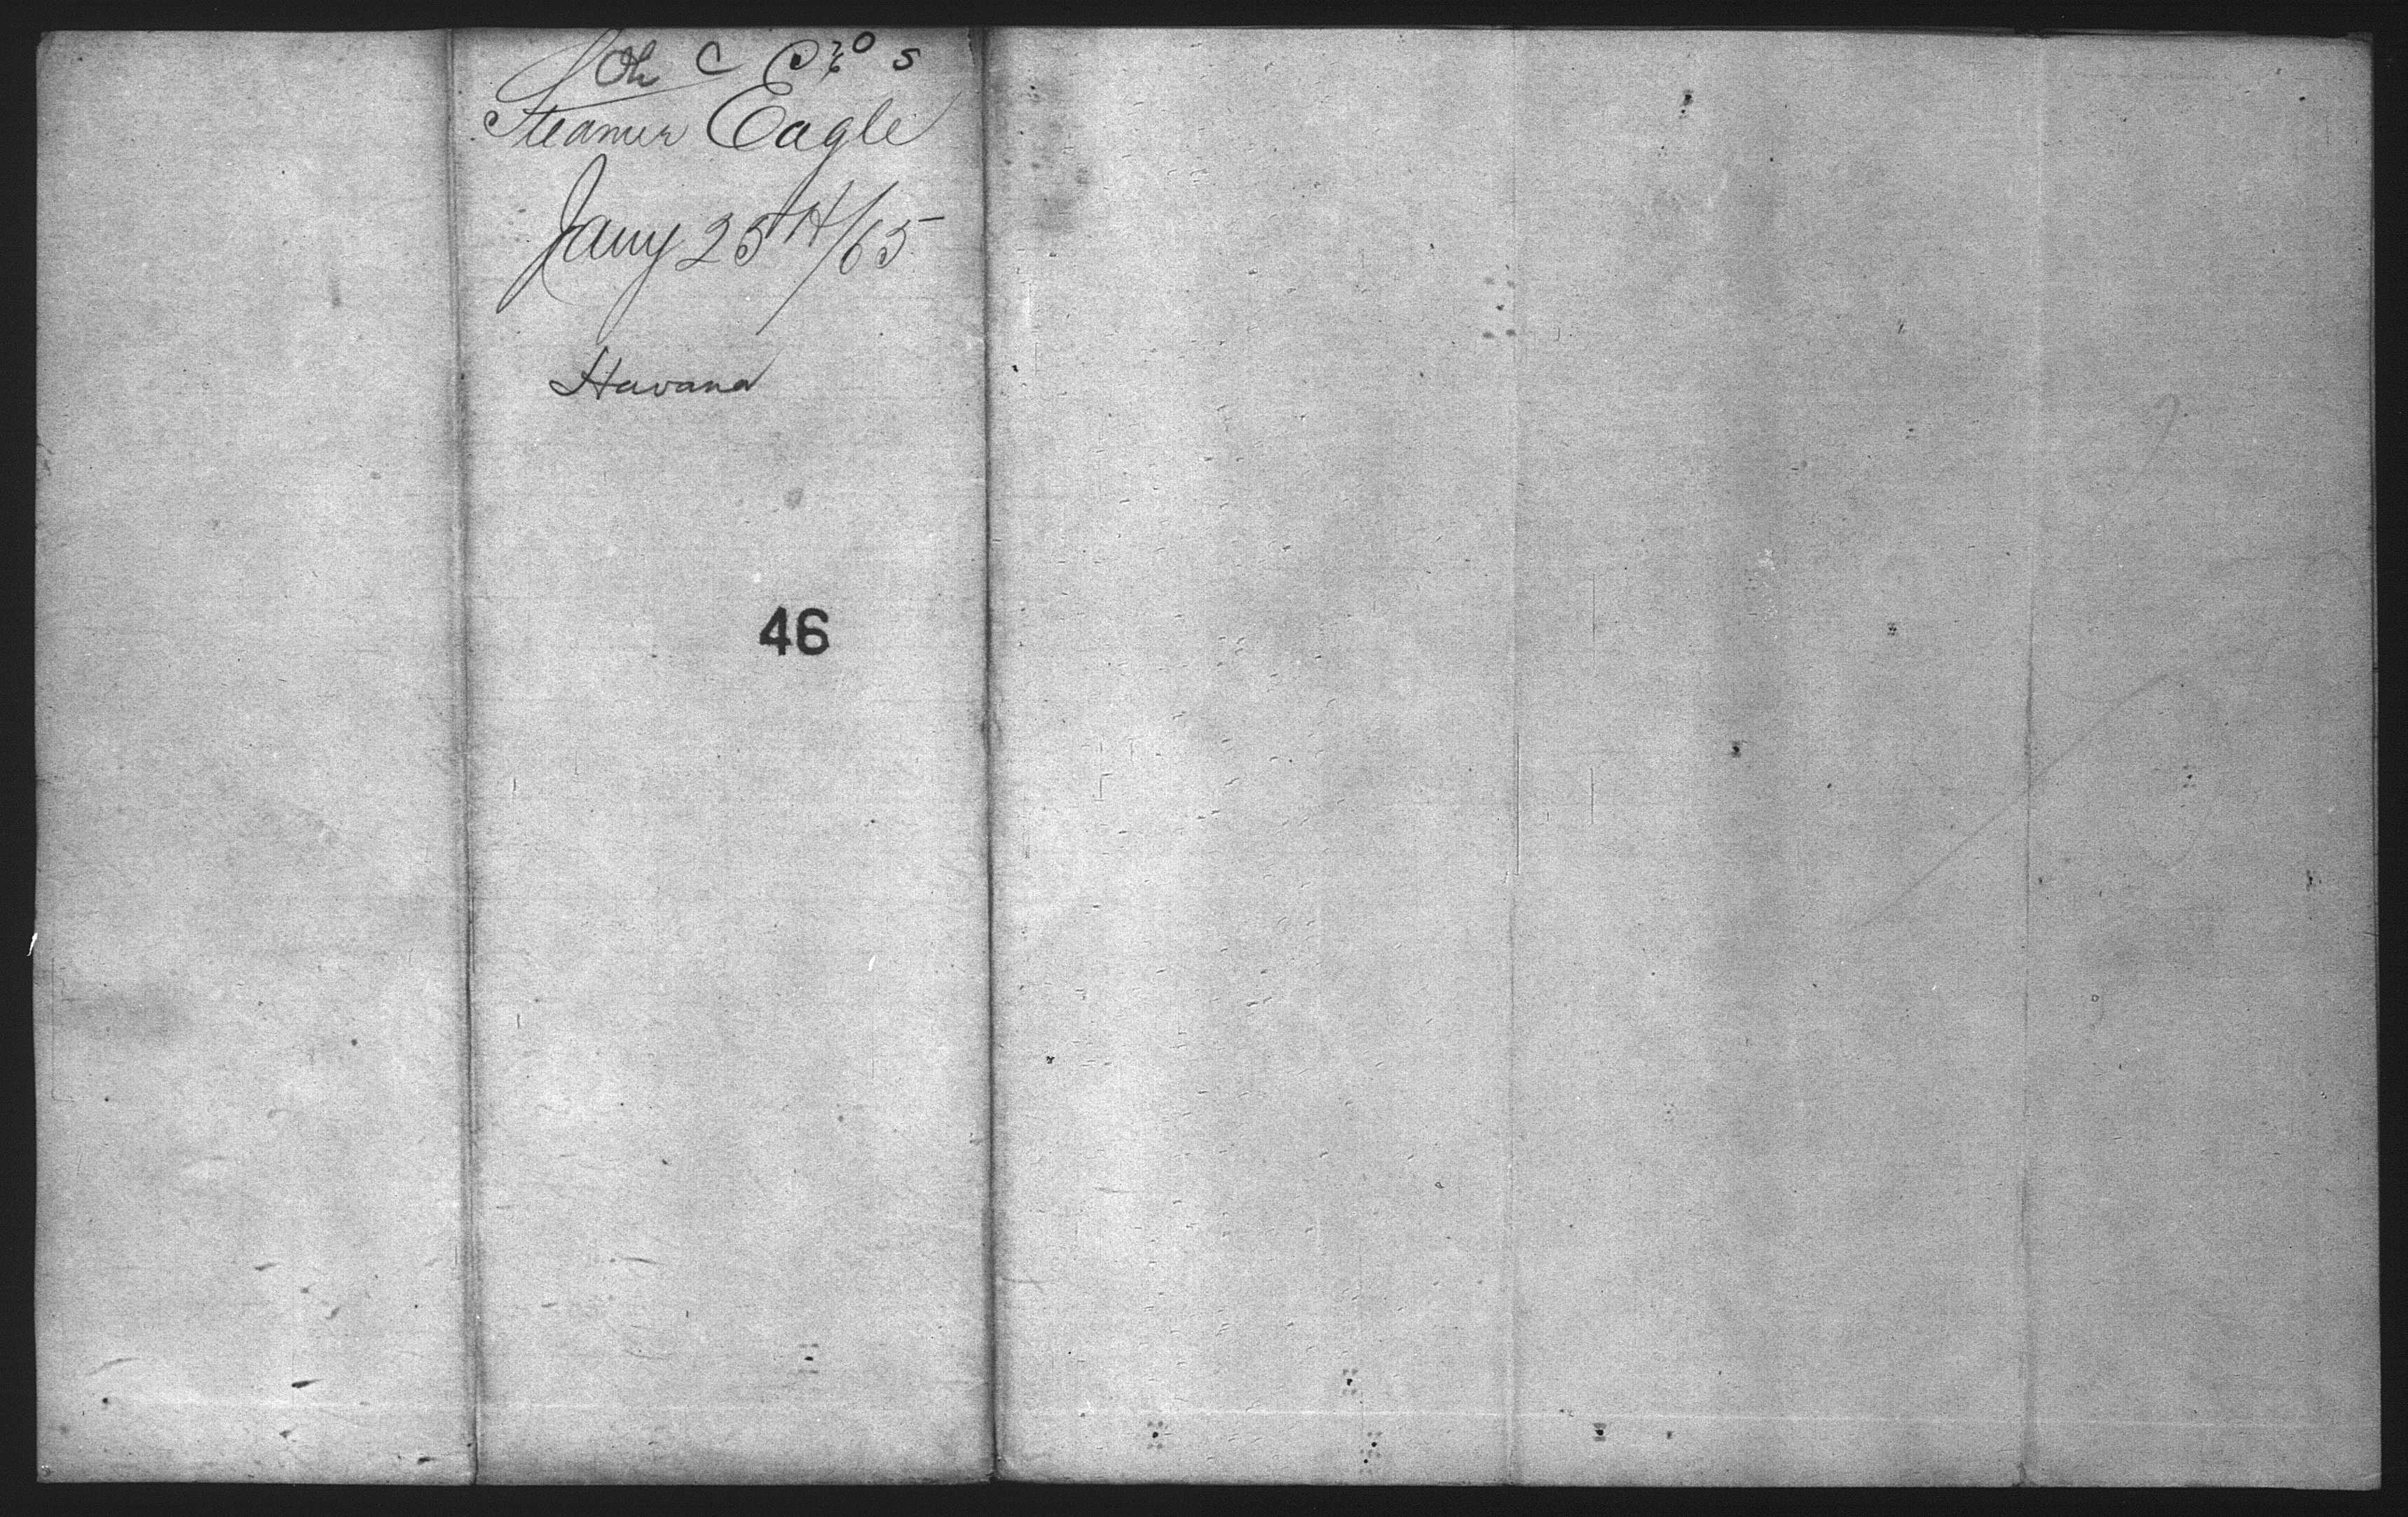 Steamer Eagle
Jany 25th/65
Havana
46